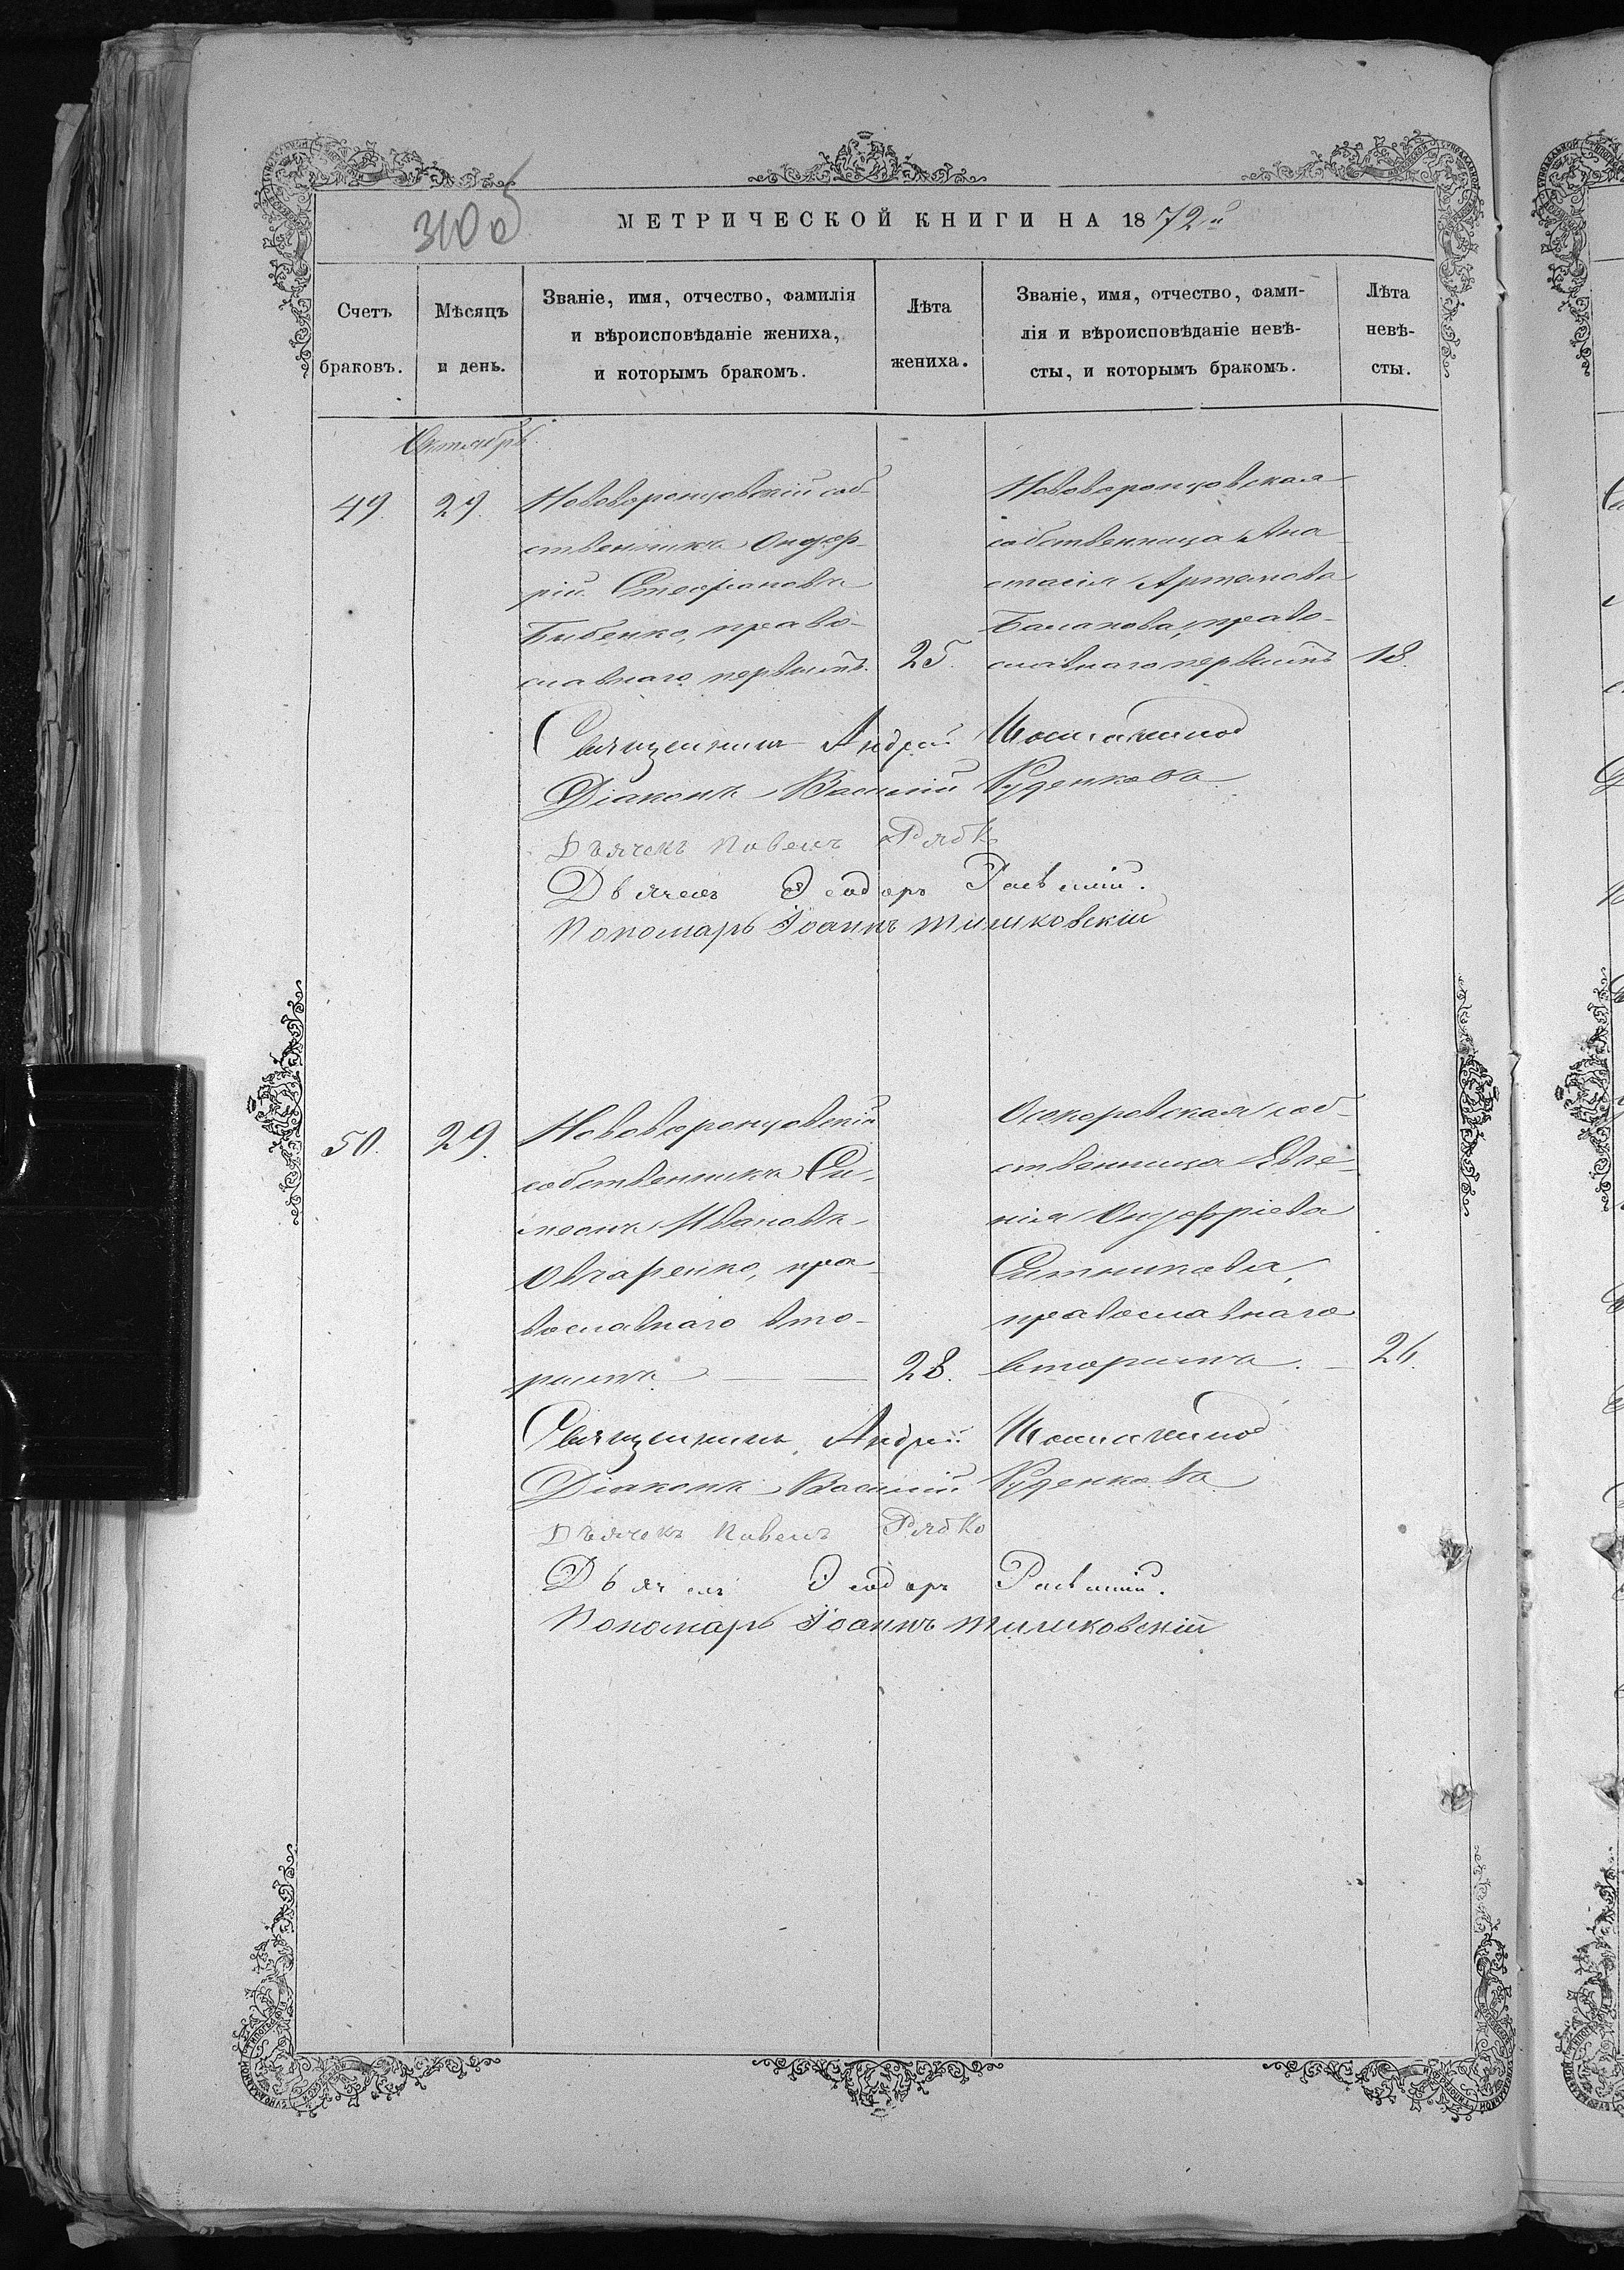 310 об
МЕТРИЧЕСКОЙ КНИГИ НА 1872й
Счетъ браковъ.
Мѣсяцъ и день.
Званіе, имя, отчество, фамилія
и вѣроисповѣданіе жениха,
и которымъ бракомъ.
Лѣта жениха.
Званіе, имя, отчество, фами-
лія и вѣроисповѣданіе невѣ-
сты, и которымъ бракомъ.
Лѣта невѣ-
сты.
Октябрь
49.
29.
Нововоронцовскій соб-
ственникъ Онуф-
рій Стефановъ
Бибенко, право-
славнаго первымъ.
25.
Нововоронцовская
собственница Ана
стасія Артемова
право-
славнаго первымъ
18.
Священникъ Андрей
Діаконъ Василій Руденковъ
Дъячекъ Павелъ Рябко
Дьячекъ Ѳеодоръ
Пономарь Іоаннъ
50.
29.
Нововоронцовскій
собственникъ Си-
меонъ Ивановъ
Овчаренко, пра-
вославнаго вто-
рымъ
28.
Осокоровская соб-
ственница Евге-
нія Онуфріева
Ситникова,
православнаго
вторымъ.
26.
Священникъ Андрей
Діаконъ Василій Руденковъ
Дъячекъ Павелъ Рябко
Дьячекъ Ѳеодоръ
Пономарь Іоаннъ